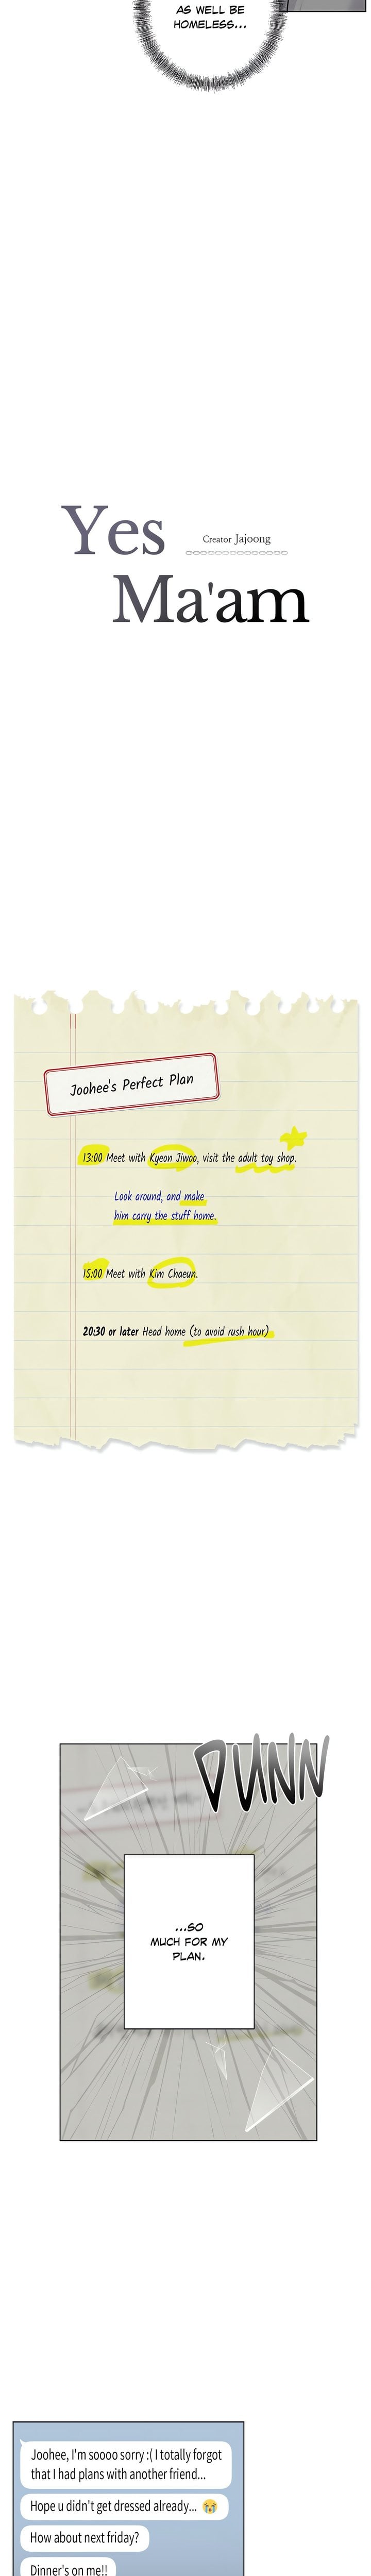 AS WELL BE
HOMELESS...
Yes
Creator Jajoong
Ma'am
Joohee's Perfect Plan
13:00 Meet with Kyeon Jiwoo, visit the adult toy shop.
Look around, and make
him carry the stuff home.
15:00 Meet with Kim Chaeun.
20:30 or later Head home (to avoid rush hour)
DUNN
...SO
MUCH FOR MY
PLAN.
Joohee, I'm soooo sorry :( I totally forgot
that I had plans with another friend...
Hope u didn't get dressed already... 😭
How about next friday?
Dinner's on me!!